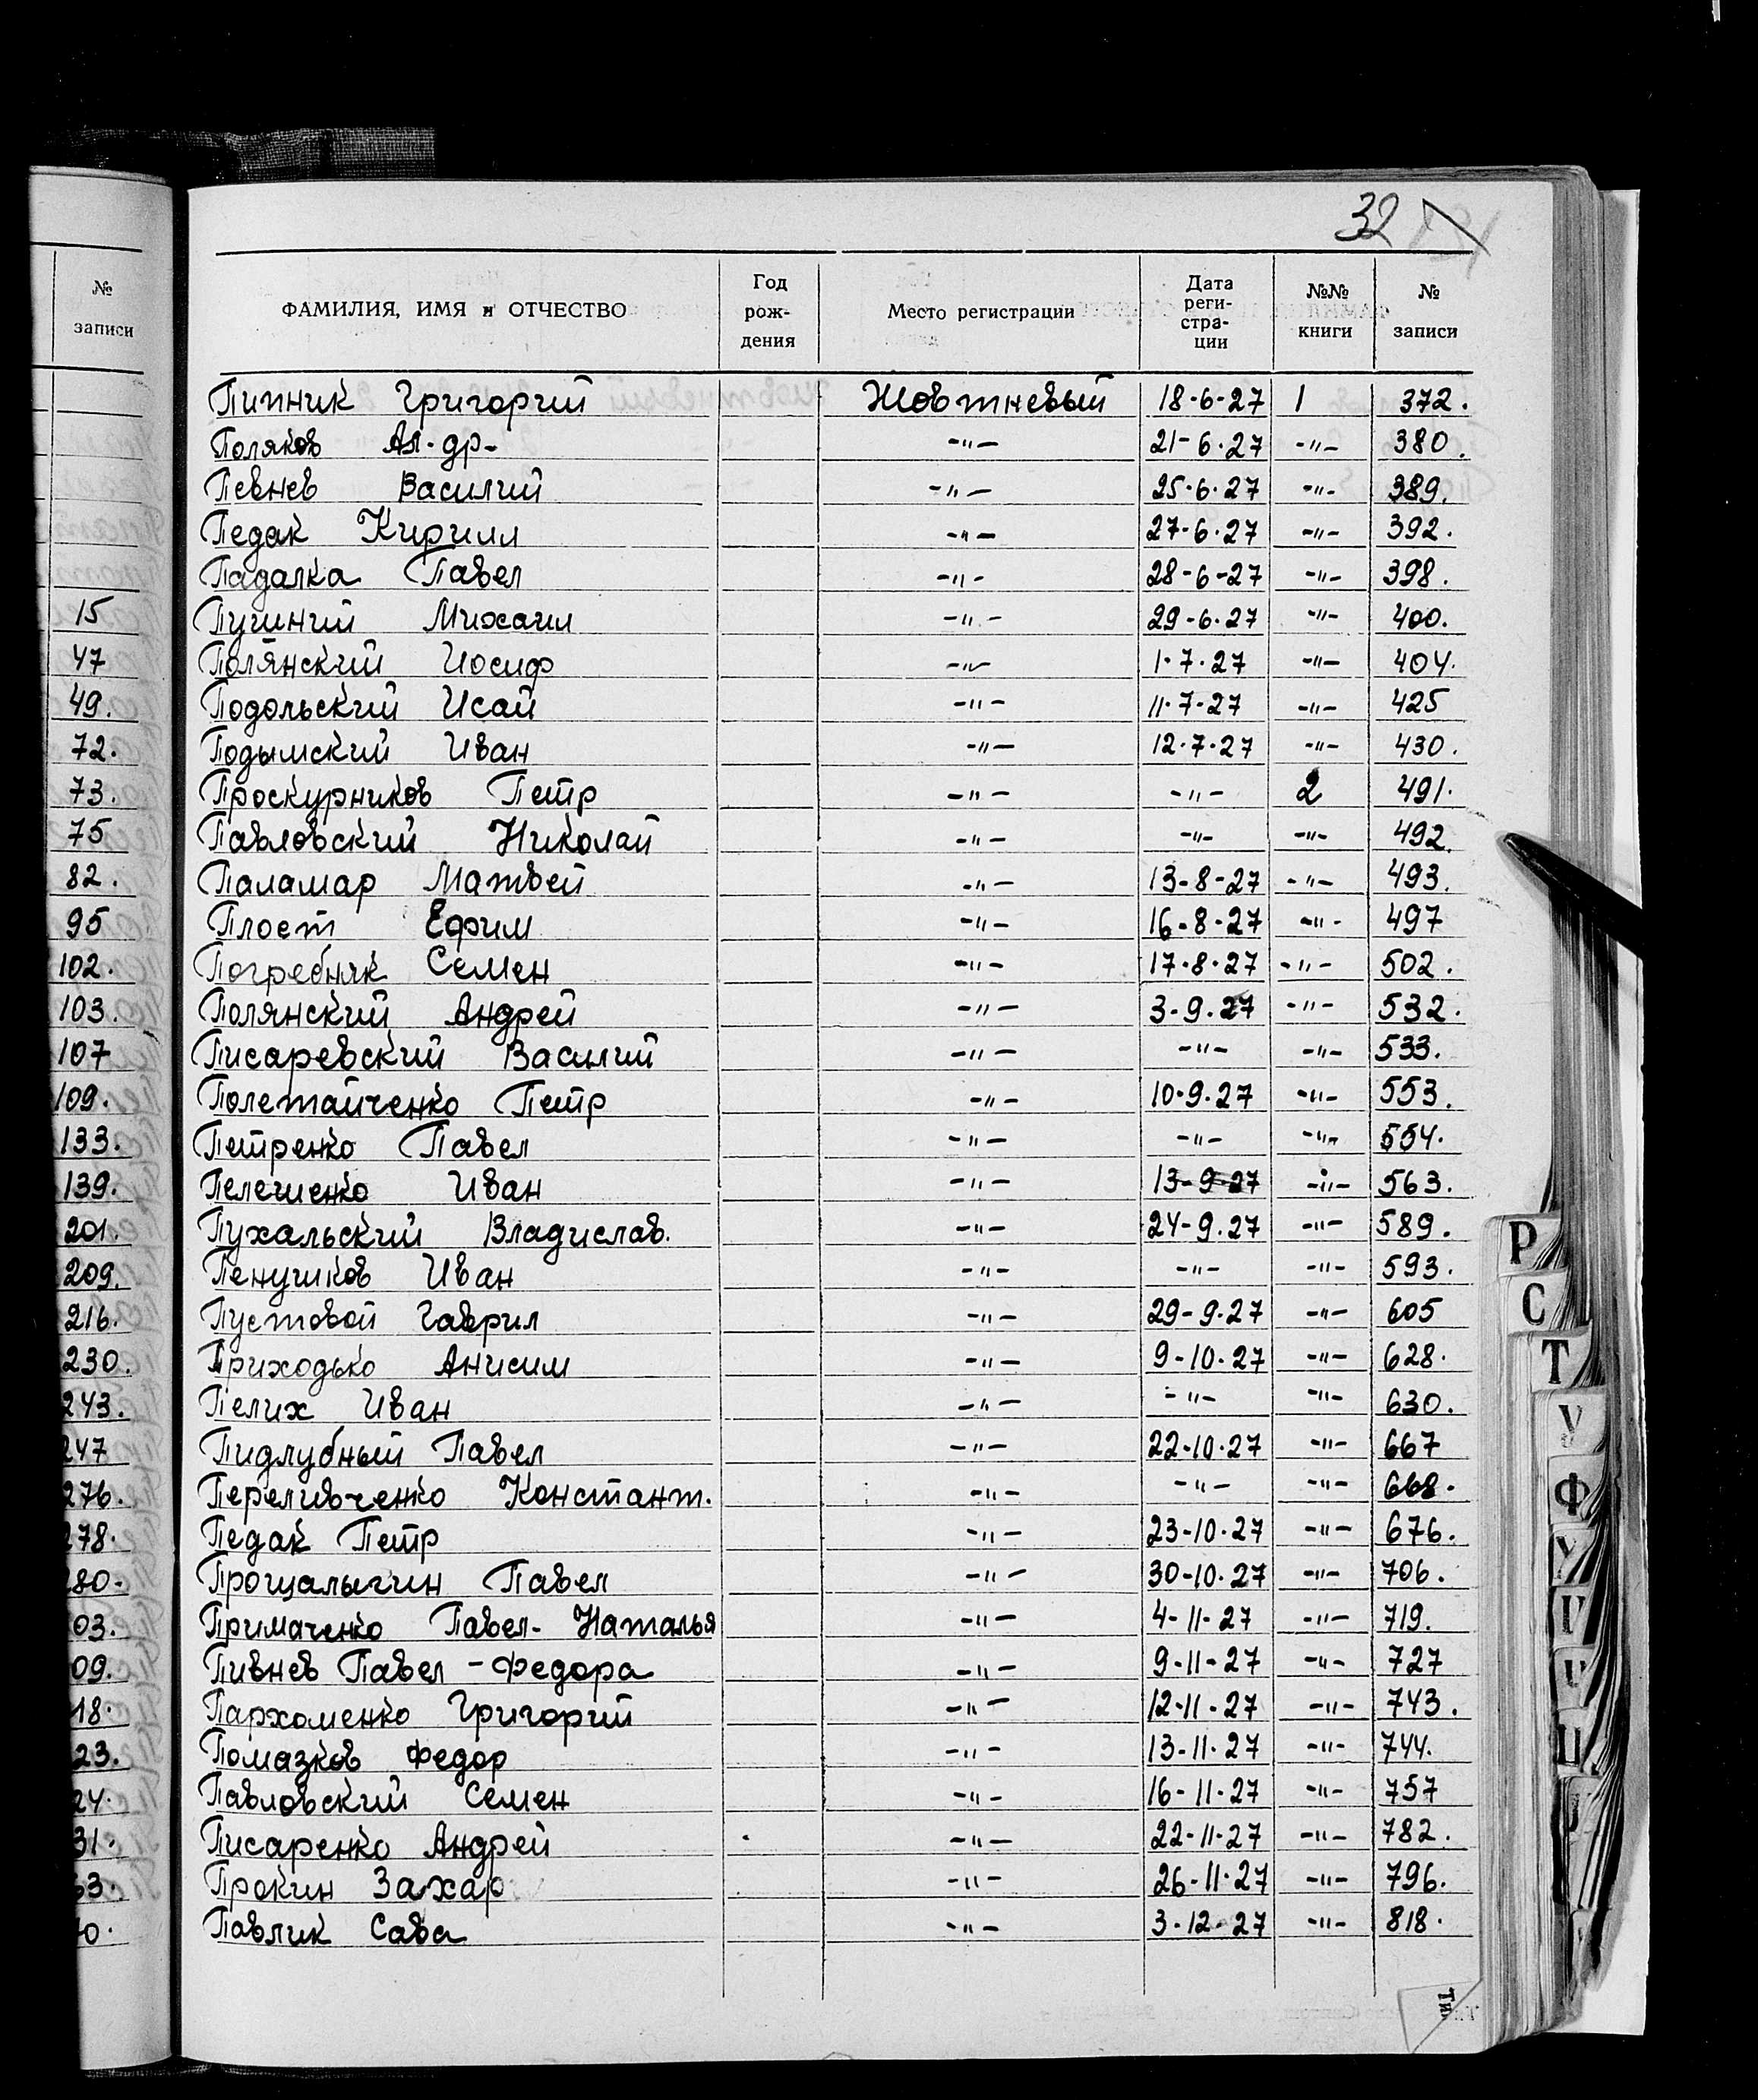 32
№ записи
15
47
49.
72.
73.
75
82.
95
102.
103.
107
109.
133.
139.
201.
209.
216.
230.
243.
247
276.
278.
80.
03.
09.
18.
23.
24.
31.
63.
0.
ФАМИЛИЯ, ИМЯ и ОТЧЕСТВО Год рож- дения Место регистрации Дата реги- стра- ции №№ книги № записи
Пипник Григорий Жовтневый 18-6-27 1 372.
Поляков Ал-др- -"- 21-6.27 -"- 380.
Певнев Василий -"- 25.6.27 -"- 389.
Педак Кирилл -"- 27-6.27 -"- 392.
Падалка Павел -"- 28-6-27 -"- 398.
Пушний Михаил -"- 29-6.27 -"- 400.
Полянский Иосиф -"- 1.7.27 -"- 404.
Подольский Исай -"- 11.7.27 -"- 425
Подымский Иван -"- 12.7.27 -"- 430.
Проскурников Петр -"- -"- 2 491.
Павловский Николай -"- -"- -"- 492.
Паламар Матвей -"- 13-8-27 -"- 493.
Плост Ефим -"- 16-8-27 -"- 497
Погребняк Семен -"- 17.8.27 -"- 502.
Полянский Андрей -"- 3-9.27 -"- 532.
Писаревский Василий -"- -"- -"- 533.
Полетайченко Петр -"- 10.9.27 -"- 553.
Петренко Павел -"- -"- -"- 554.
Пелешенко Иван -"- 13-9-27 -"- 563.
Пухальский Владислав. -"- 24-9.27 -"- 589.
Пенушков Иван -"- -"- -"- 593.
Пустовой Гаврил -"- 29-9.27 -"- 605
Приходько Анисим -"- 9-10.27 -"- 628.
Пелих Иван -"- -"- -"- 630.
Пидлубный Павел -"- 22-10.27 -"- 667
Переливченко Констант. -"- -"- -"- 668.
Педак Петр -"- 23-10.27 -"- 676.
Прощалыгин Павел -"- 30-10.27 -"- 706.
Примаченко Павел- Наталья -"- 4-11-27 -"- 719.
Пивнев Павел - Федора -"- 9-11-27 -"- 727
Пархоменко Григорий -"- 12-11-27 -"- 743.
Помазков Федор -"- 13-11.27 -"- 744.
Павловский Семен -"- 16-11.27 -"- 757
Писаренко Андрей -"- 22-11.27 -"- 782.
Прокин Захар -"- 26-11.27 -"- 796.
Павлик Сава -"- 3-12-27 -"- 818.
Р
С
Т
У
Ф